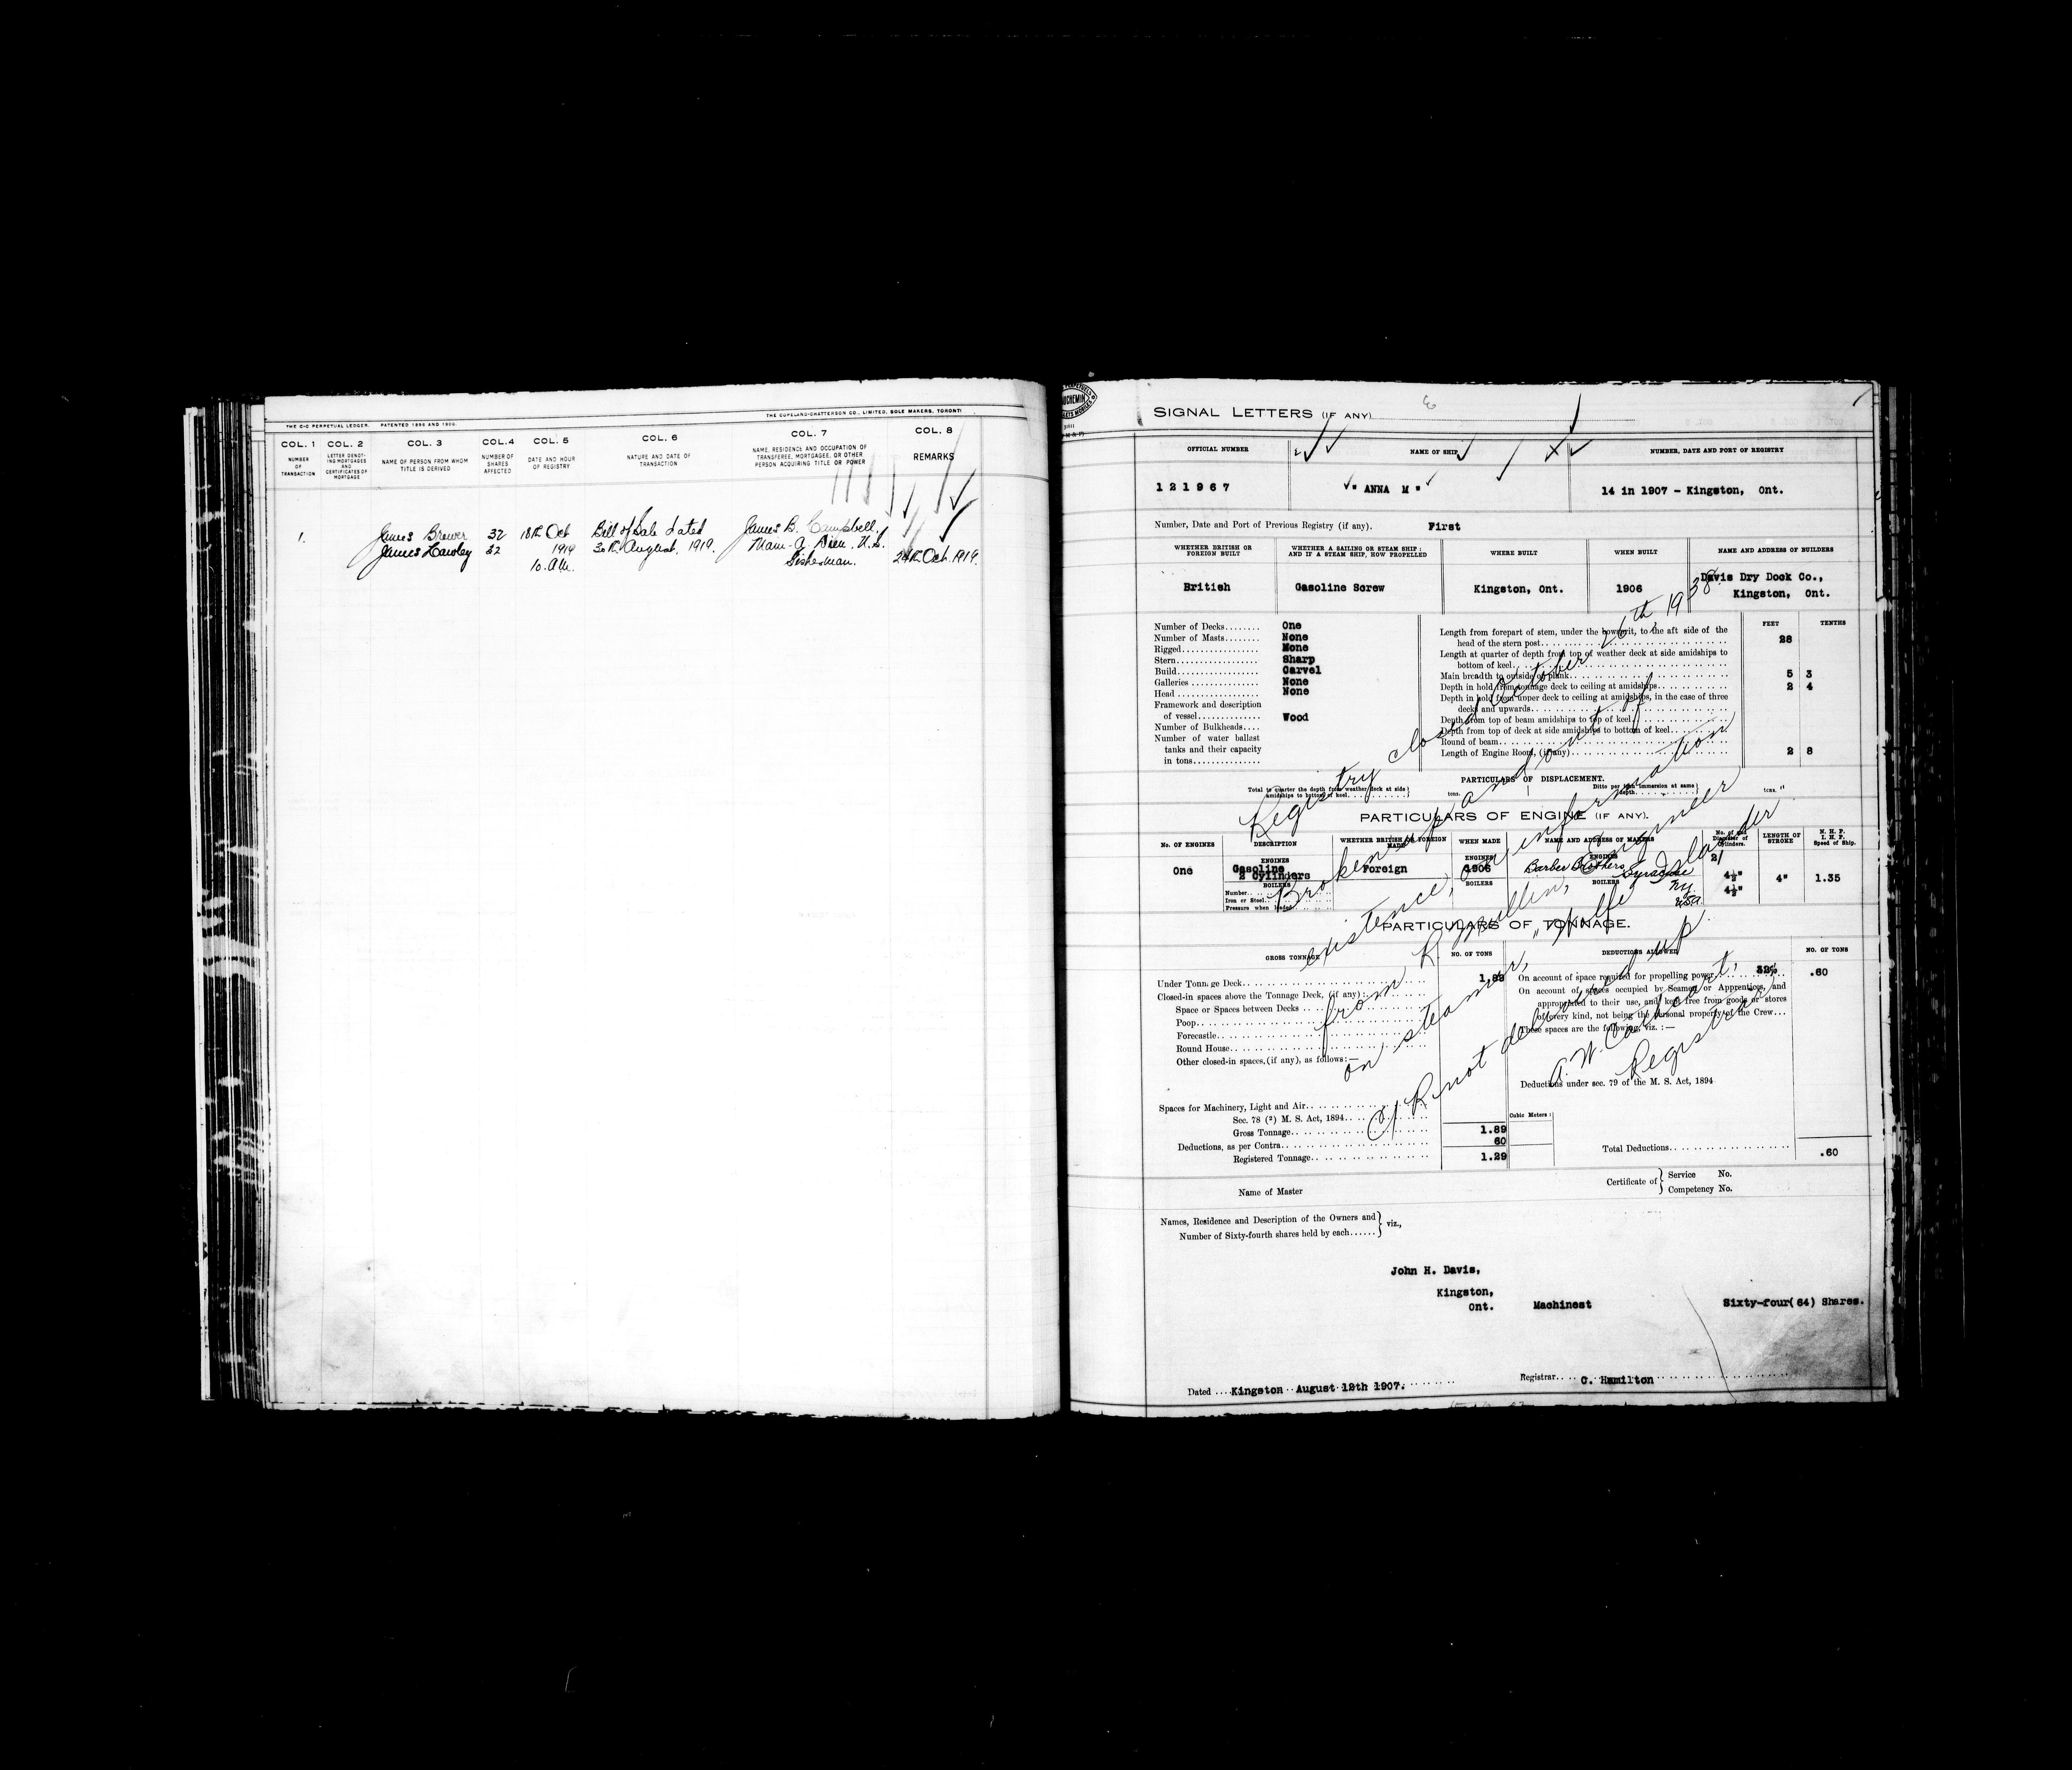 THE C-C PERPETUAL LEDGER. PATENTED 1896 AND 1906. THE COPELAND-CHATTERSON CO., LIMITED, SOLE MAKERS, TORONTO
COL. 1 COL. 2 COL. 3 COL. 4 COL. 5 COL. 6 COL. 7 COL. 8
NUMBER OF TRANSACTION
LETTER DENOTING MORTGAGES AND CERTIFICATES OF MORTGAGE
NAME OF PERSON FROM WHOM TITLE IS DERIVED
NUMBER OF SHARES AFFECTED
DATE AND HOUR OF REGISTRY
NATURE AND DATE OF TRANSACTION
NAME, RESIDENCE AND OCCUPATION OF TRANSFEREE, MORTGAGEE, OR OTHER PERSON ACQUIRING TITLE OR POWER
REMARKS
1. James Brewer 32 18th Oct Bill of Sale dated James B. Campbell,
James Hawley 32 1919 30th August, 1919. Main-a-Dieu. N.S.
10. A.M. Fisherman. 24th Oct. 1919.
SIGNAL LETTERS (IF ANY)
OFFICIAL NUMBER NAME OF SHIP NUMBER, DATE AND PORT OF REGISTRY
121967 " ANNA M " 14 in 1907 - Kingston, Ont.
Number, Date and Port of Previous Registry (if any). First
WHETHER BRITISH OR FOREIGN BUILT
WHETHER A SAILING OR STEAM SHIP: AND IF A STEAM SHIP, HOW PROPELLED
WHERE BUILT
WHEN BUILT
NAME AND ADDRESS OF BUILDERS
British Gasoline Screw Kingston, Ont. 1906 Davis Dry Dock Co.,
Kingston, Ont.
Number of Decks........ One
Number of Masts........ None
Rigged................ None
Stern.................. Sharp
Build.................. Carvel
Galleries............... None
Head.................. None
Framework and description
of vessel............. Wood
Number of Bulkheads....
Number of water ballast
tanks and their capacity
in tons...............
FEET TENTHS
Length from forepart of stem, under the bowsprit, to the aft side of the
head of the stern post 28
Length at quarter of depth from top of weather deck at side amidships to
bottom of keel
Main breadth to outside of plank 5 3
Depth in hold from tonnage deck to ceiling at amidships 2 4
Depth in hold from upper deck to ceiling at amidships, in the case of three
decks and upwards
Depth from top of beam amidships to top of keel
Depth from top of deck at side amidships to bottom of keel
Round of beam
Length of Engine Room, (if any) 2 8
PARTICULARS OF DISPLACEMENT.
Total to quarter the depth from weather deck at side
amidships to bottom of keel tons.
Ditto per inch immersion at same
depth tons.
PARTICULARS OF ENGINE (IF ANY).
No. OF ENGINES DESCRIPTION WHETHER BRITISH OR FOREIGN MADE WHEN MADE NAME AND ADDRESS OF MAKERS No. of and Diameter of Cylinders. LENGTH OF STROKE N. H. P. I. H. P. Speed of Ship.
ENGINES ENGINES ENGINES
One Gasoline Foreign 1906 Barber Brothers 2/
2 Cylinders Syracuse 4½" 4" 1.35
BOILERS BOILERS BOILERS N.Y. 4½"
Number U.S.A.
Iron or Steel
Pressure when loaded
PARTICULARS OF TONNAGE.
GROSS TONNAGE NO. OF TONS DEDUCTIONS ALLOWED NO. OF TONS
Under Tonnage Deck
Closed-in spaces above the Tonnage Deck, (if any):
Space or Spaces between Decks
Poop
Forecastle
Round House
Other closed-in spaces, (if any), as follows:—
On account of space required for propelling power 32% .60
On account of spaces occupied by Seamen or Apprentices, and
appropriated to their use, and kept free from goods or stores
of every kind, not being the personal property of the Crew...
These spaces are the following, viz.:—
Deductions under sec. 79 of the M. S. Act, 1894
Cubic Meters:
Spaces for Machinery, Light and Air
Sec. 78 (²) M. S. Act, 1894
Gross Tonnage 1.89
Deductions, as per Contra 60
Registered Tonnage 1.29
Total Deductions .60
Registry closed October 26th, 1938.
Broken up and out of
existence, on information
from R. Mullin, Engineer
on steamer, "Wolfe Islander
C/R not delivered up
A. W. Cathcart,
Registrar
Name of Master
Certificate of Service No.
Competency No.
Names, Residence and Description of the Owners and
Number of Sixty-fourth shares held by each...... viz.,
John H. Davis,
Kingston,
Ont. Machinest Sixty-four(64) Shares.
Dated .... Kingston August 12th 1907.
Registrar.... C. Hamilton